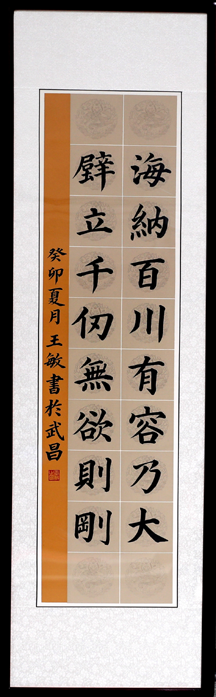 海納百川有容乃大
壁立千仞無欲則剛
癸卯夏月王敏書於武昌